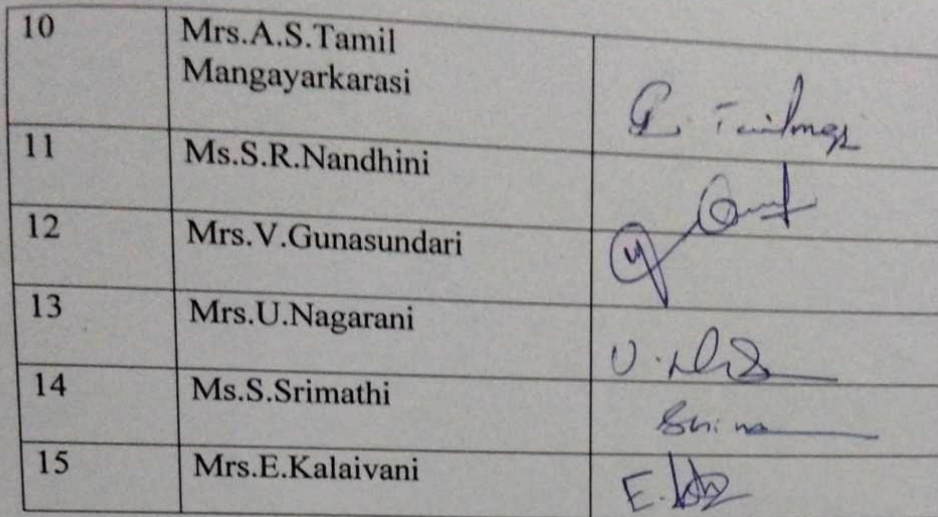 10 Mrs.A.S.Tamil
Mangayarkarasi
11 Ms.S.R.Nandhini
12 Mrs.V.Gunasundari
13 Mrs.U.Nagarani
U.
14 Ms.S.Srimathi
15 Mrs.E.Kalaivani
E.